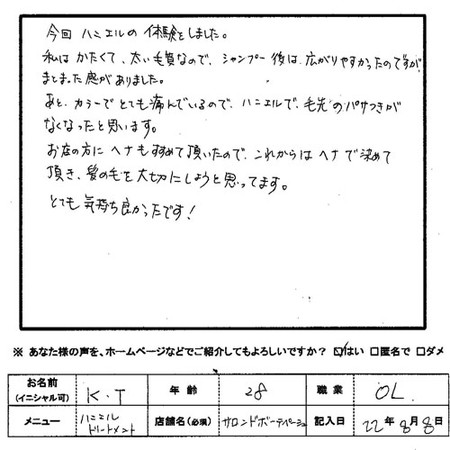 今回 ハニエルの 体験をしました。
私は かたくて、太い毛質なので、シャンプー後は 広がりやすかったのですが、
まとまった感がありました。
あと、カラーで とても痛んでいるので、ハニエルで、毛先のパサつきが
なくなったと思います。
お店の方に ヘナもすすめて頂いたので、これからは ヘナで染めて
頂き、髪の毛を大切にしようと思ってます。
とても 気持ち良かったです!
※ あなた様の声を、ホームページなどでご紹介してもよろしいですか? ☑はい □匿名で □ダメ
お名前 (イニシャル可) K・T 年齢 28 職業 OL.
メニュー ハニエル トリートメント 店舗名(必須) サロンドボーテ 記入日 22年8月8日